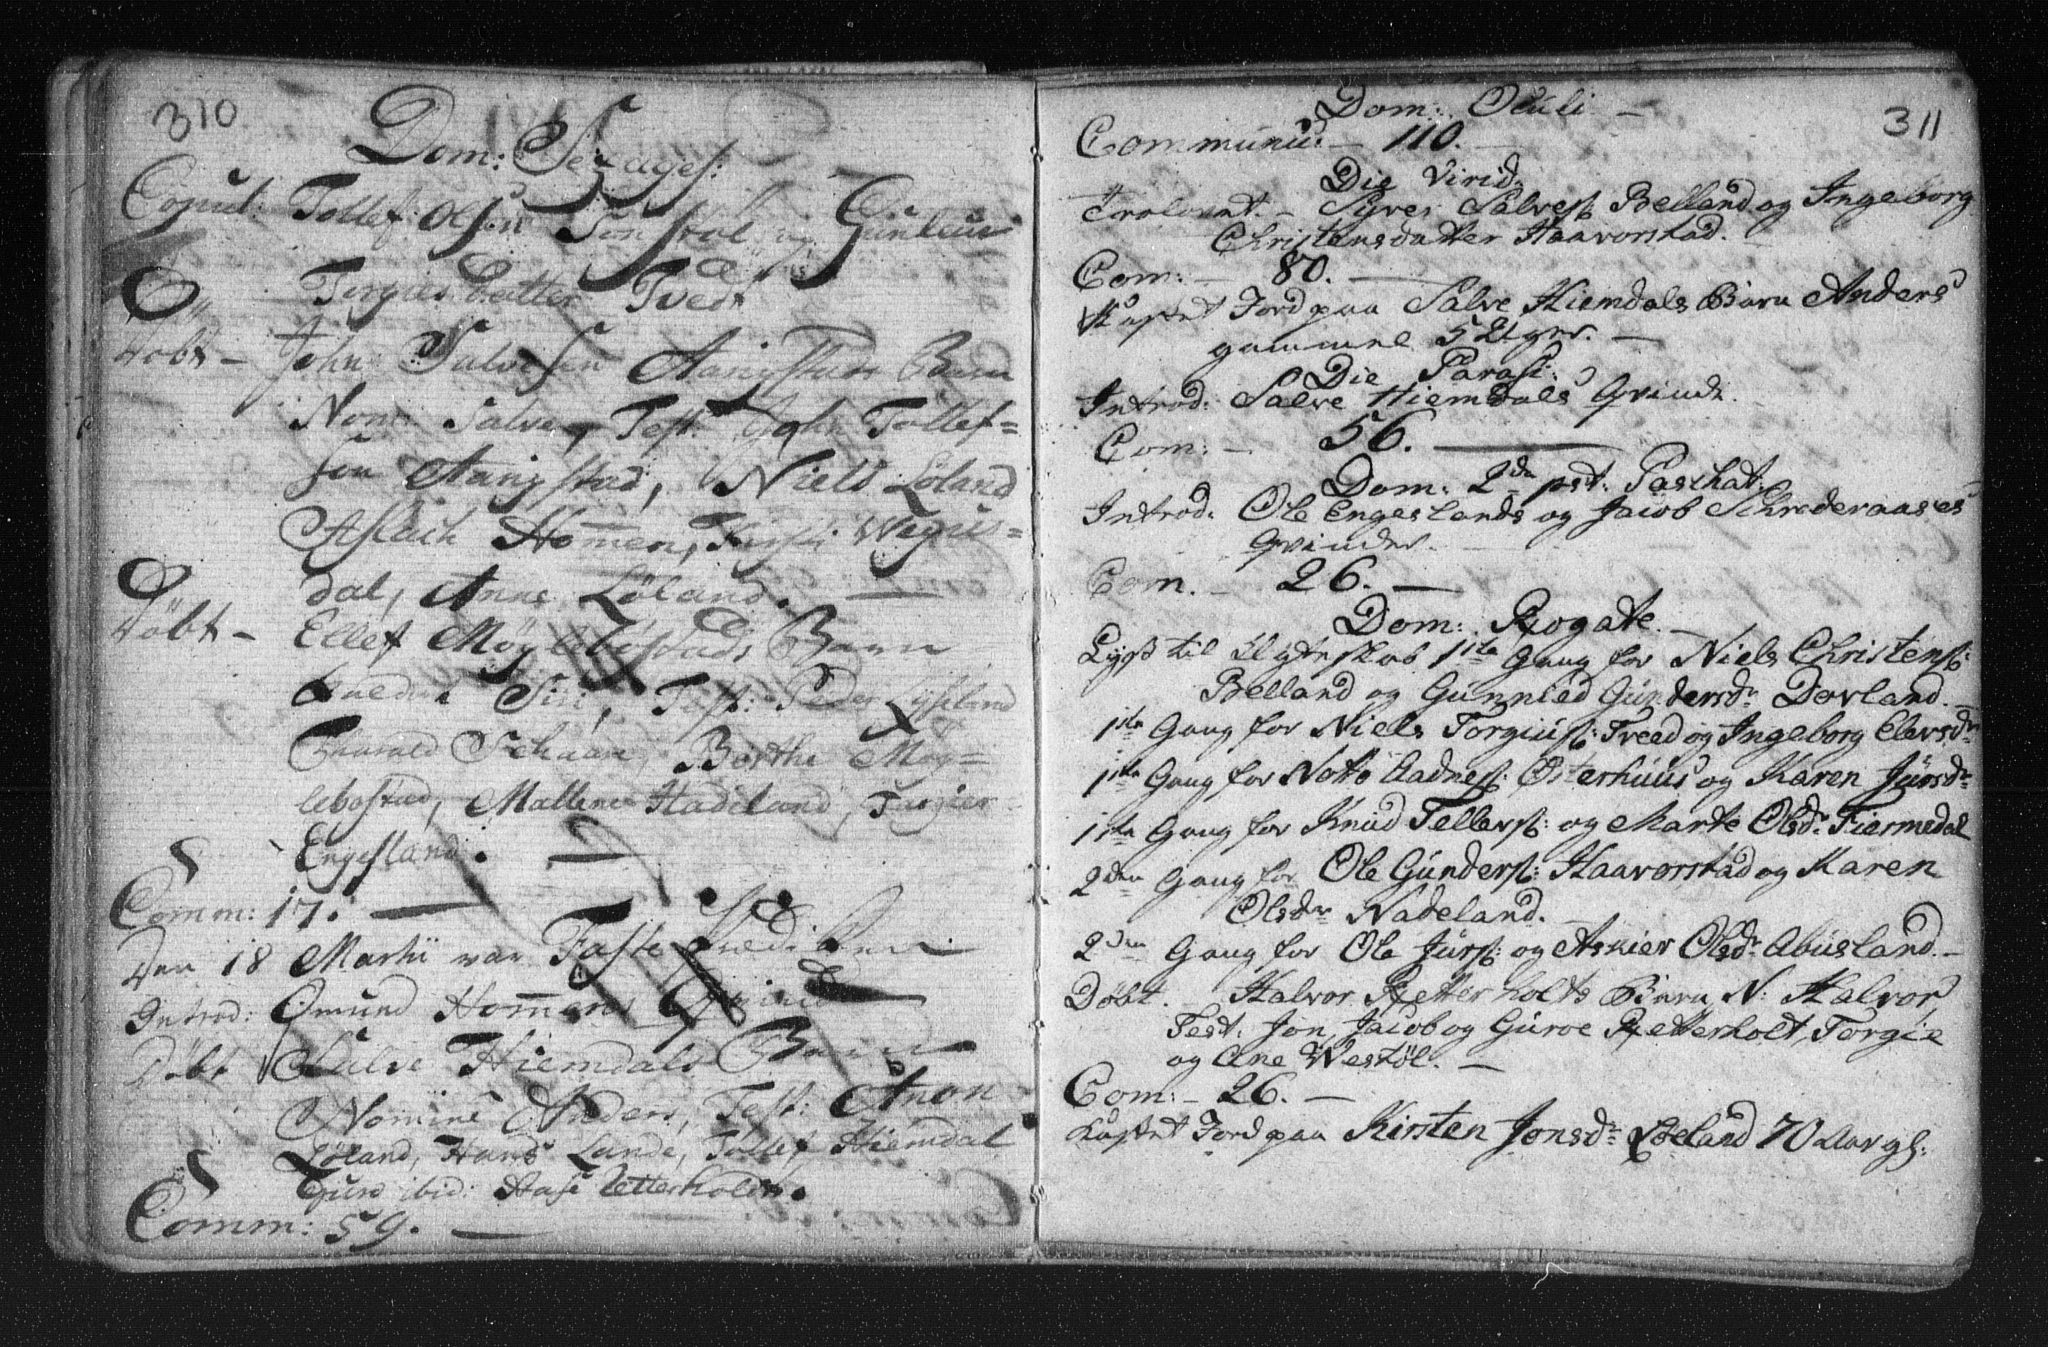 310
Dom: Sexages:
Copul: Tollef Olsen Tonstøl og Gunleu
Torgiusdatter Tvedt
Døbt – John Salvesen Aarigstads Barn
Nom: Salve, Test: John Tollef=
sen Aarigstad, Niels Løland
Aslach Hommen, Wegus=
dal, Anne Løland. —
Døbt – Ellef Møglebostads Barn
Siri, Test: Peder
Harald Birthe Møg=
lebostad, Mallene Hadeland, Torgier
Engesland. —
Comm: 17. —
Den 18 Martii var Faste
Introd: Omund Hommens Qvinde —
Døbt Salve Hiemdals Barn
Nomine Anders, Test: Anon
Løland, Hans Lande, Tollef Hiemdal
Guro ibid: Aase Retterholdt.
Comm: 59. —
311
Dom: Oculi —
Communic: – 110. –
Die Virid:
Trolovet. – Syver Salves: Belland og Ingeborg
Christensdatter Haavorstad. –
Com: – 80. —
Kastet Jord paa Salve Hiemdals Barn Anders
gammel 5 Uger. —
Die Parasc:
Introd: Salve Hiemdals Qvinde.
Com: – 56. —
Dom: 2den pst: Paschat:
Introd: Ole Engeslands og Jacob Schrederaases
Qvinder. –
Com. – 26. —
Dom: Rogate. –
Lyst til Ægteskab 1ste Gang for Niels Christens:
Belland og Gunnild Gundersdr Dovland. –
1ste Gang for Niels Torgius: Treed og Ingeborg Elersdr
1ste Gang for Notto Aadnes: Østerhuus og Karen Jürsdr
1ste Gang for Knud Tellefs: og Marte Olsdr Fiermedal
2den Gang for Ole Gunders: Haavorstad og Karen
Olsdr Nadeland.
2den Gang for Ole Jürs: og Asnier Olsdr Abusland. –
Døbt. – Halvor Retterholts Barn, N: Halvor
Test: Jon, Jacob og Guroe Retterholt, Torgie
og Ane Westøl. —
Com: – 26. —
Kastet Jord paa Kirsten Jonsdr Løeland 70 Aar gl: